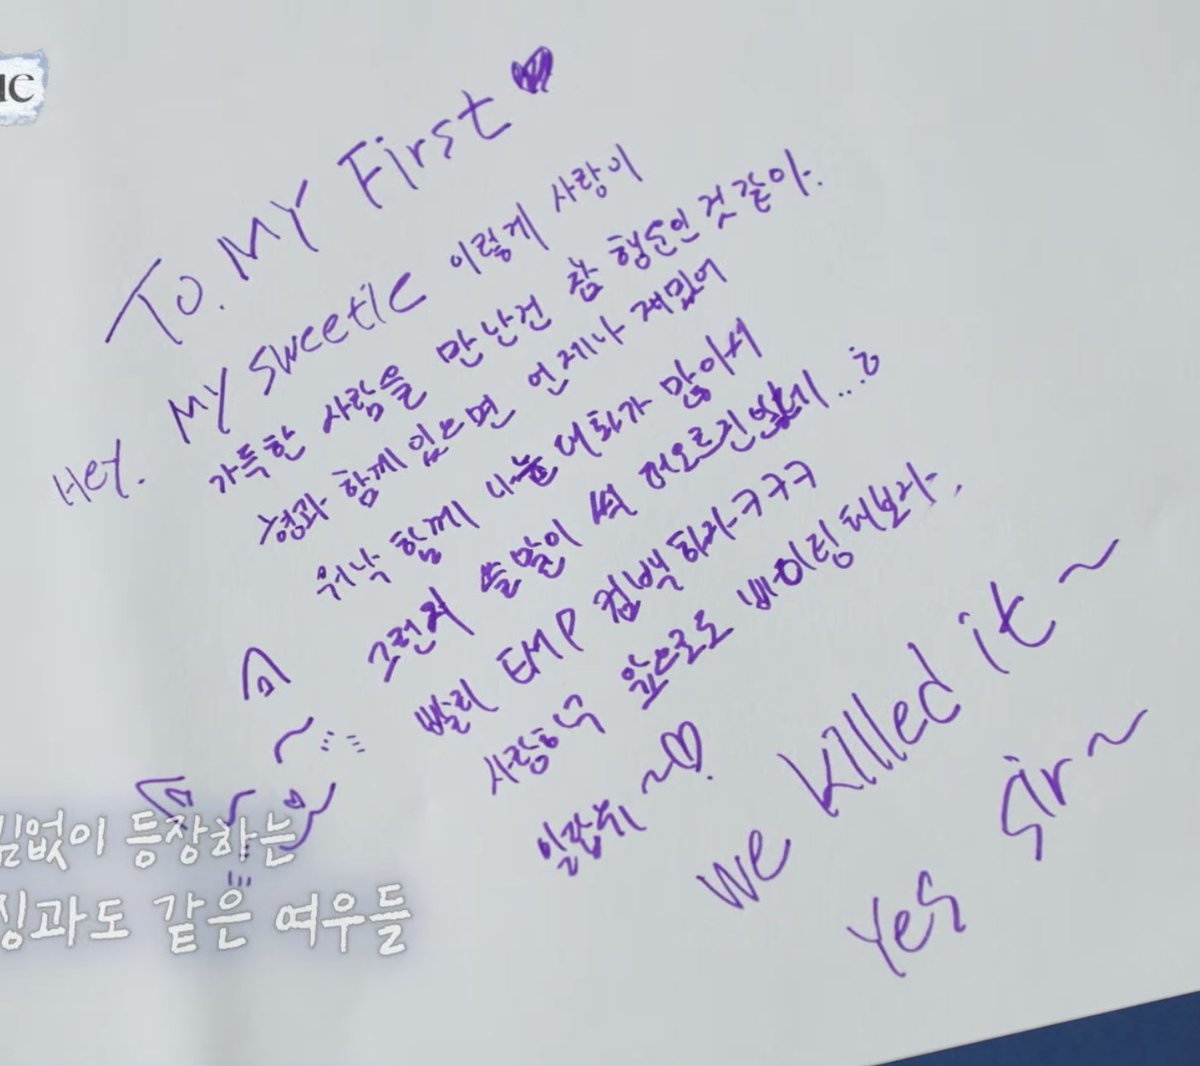 IC
To. MY First ♥
Hey. MY sweetie 이렇게 사랑이
가득한 사람을 만난건 참 행운인것 같아.
형과 함께 있으면 언제나 재밌어
워낙 함께 나눈 대화가 많아서
그런지 쓸말이 썩 떠오르진않네...ㅎ
빨리 EMP 컴백하자ㅋㅋㅋ
사랑하구 앞으로도 버이팅해보자.
~♡.
we killed it~
Yes sir~
김없이 등장하는
싱과도 같은 여우들